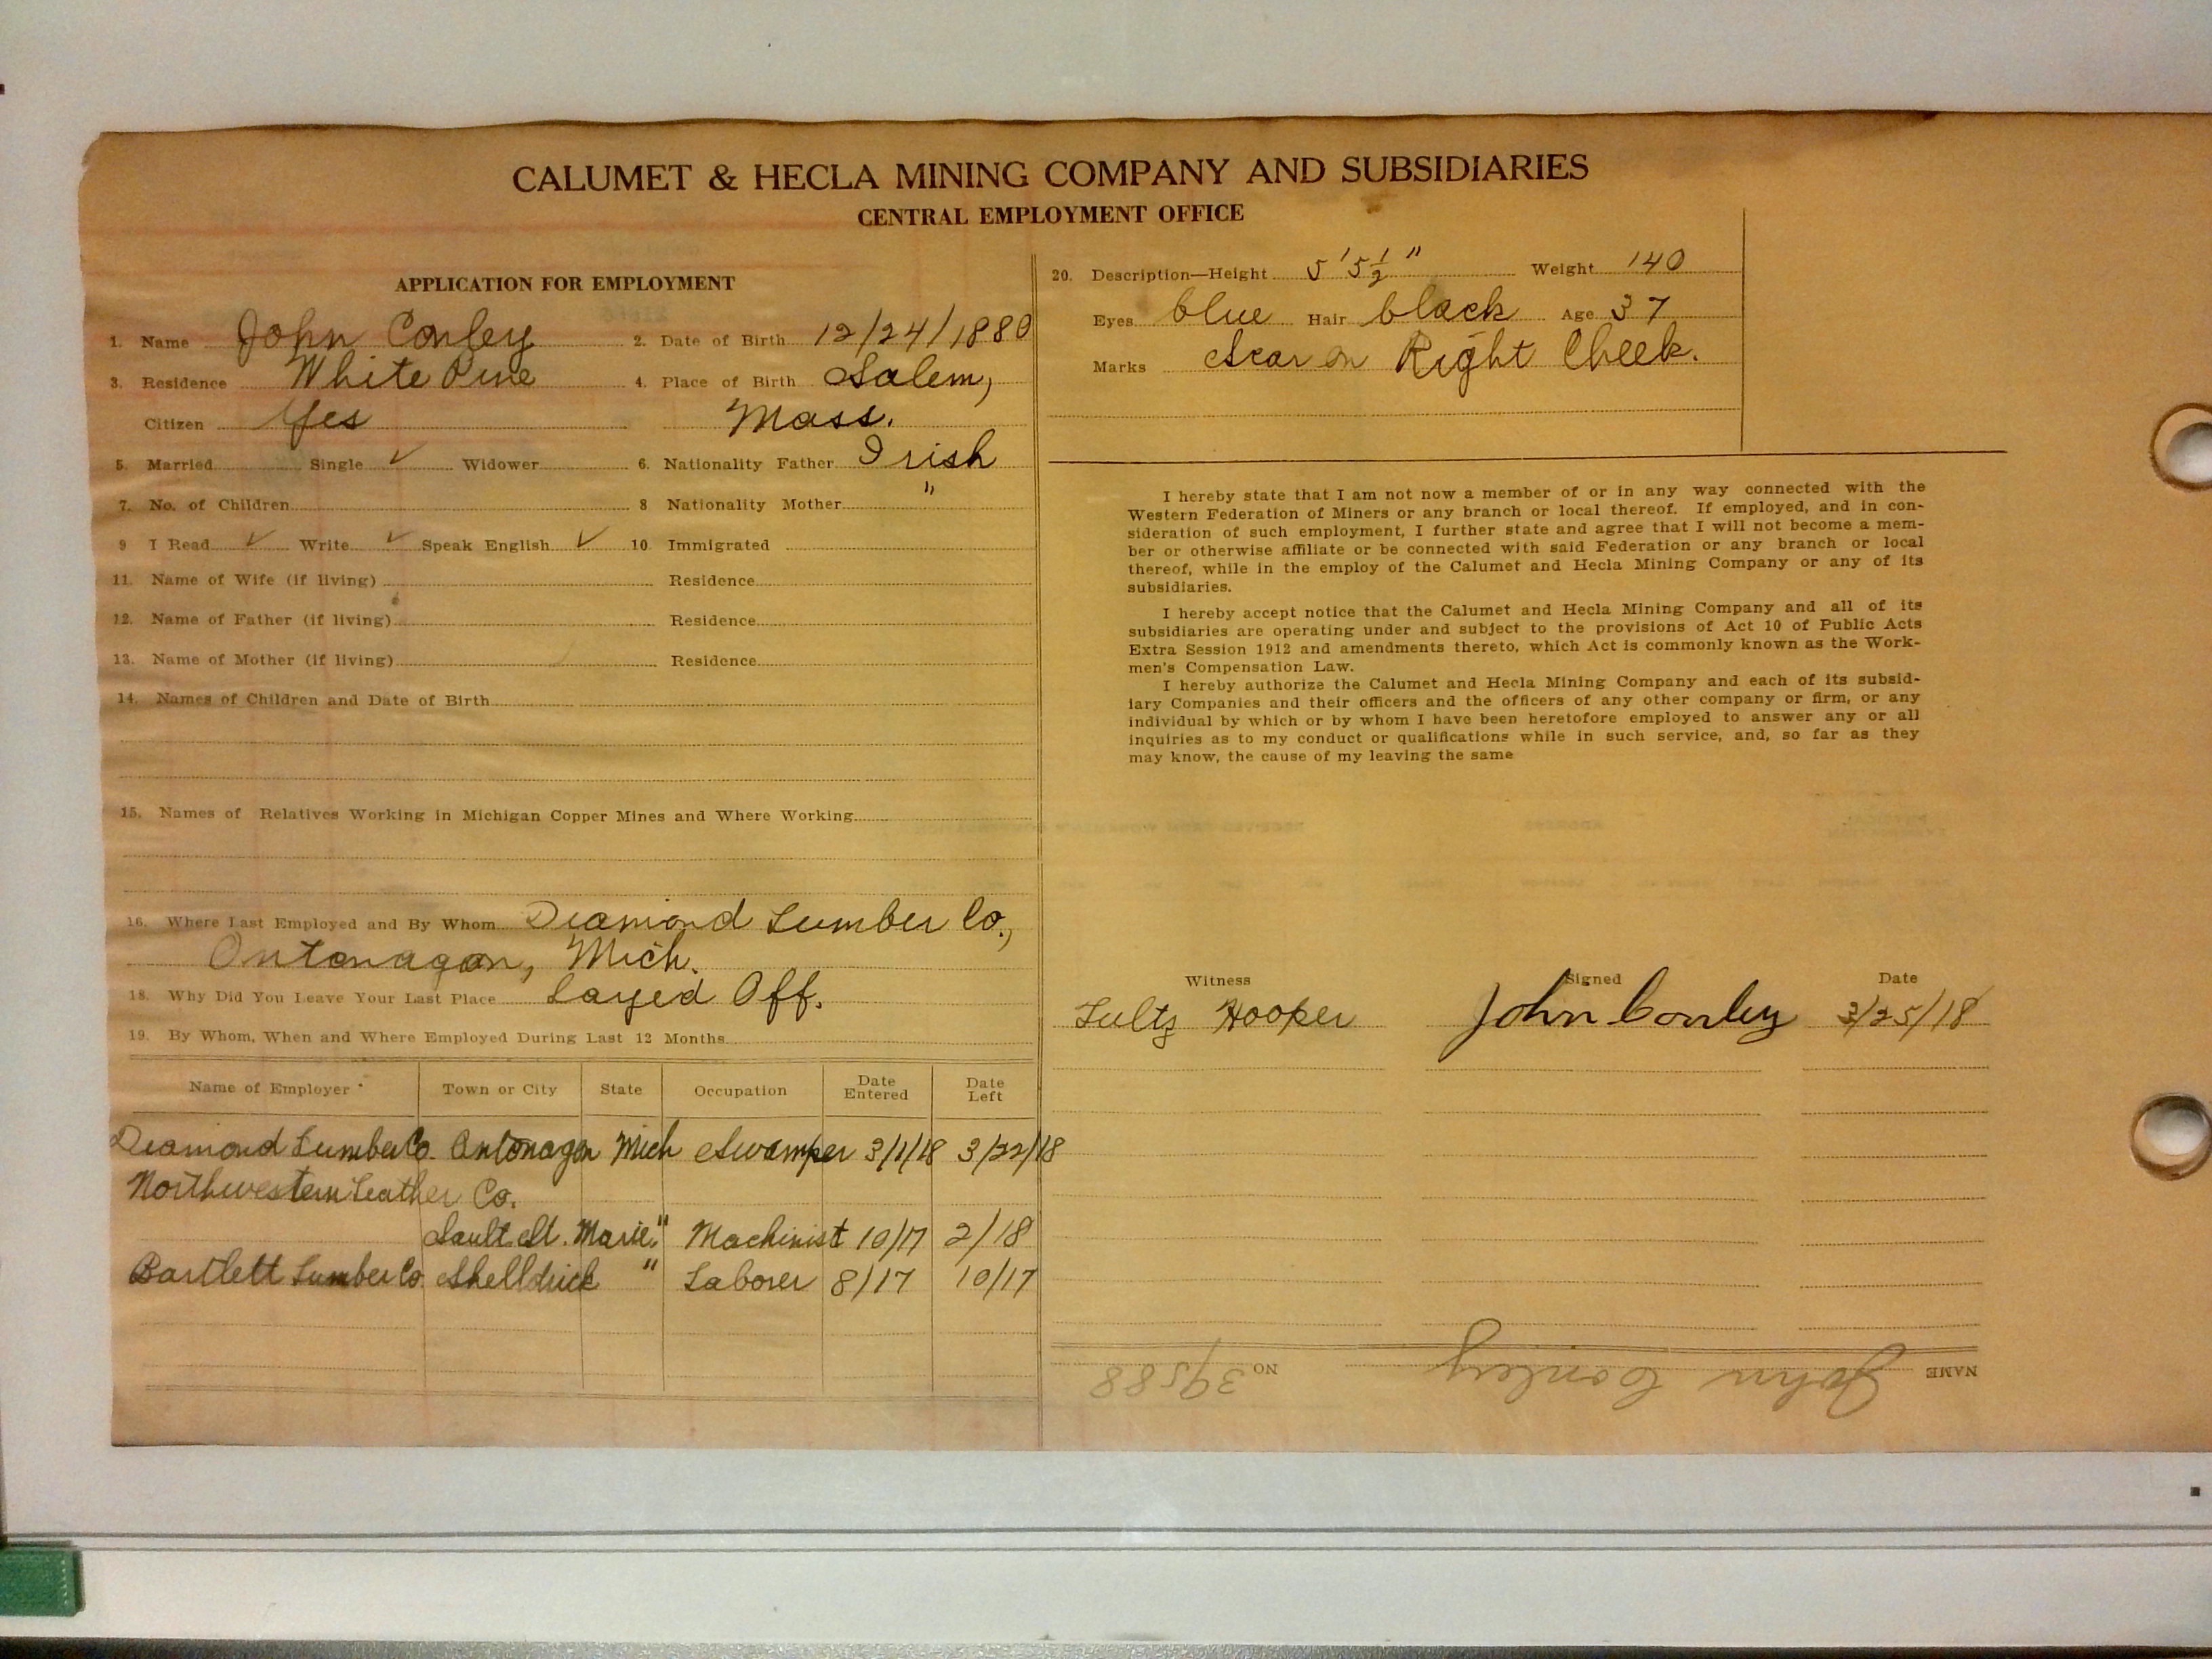 CALUMET & HECLA MINING COMPANY AND SUBSIDIARIES
CENTRAL EMPLOYMENT OFFICE
APPLICATION FOR EMPLOYMENT
1. Name John Conley 2. Date of Birth 12/24/1880
3. Residence White Pine 4. Place of Birth Salem,
Citizen Yes Mass.
5. Married Single ✓ Widower 6. Nationality Father Irish
7. No. of Children 8 Nationality Mother "
9 I Read ✓ Write ✓ Speak English ✓ 10. Immigrated
11. Name of Wife (if living) Residence
12. Name of Father (if living) Residence
13. Name of Mother (if living) Residence
14. Names of Children and Date of Birth
15. Names of Relatives Working in Michigan Copper Mines and Where Working
16. Where Last Employed and By Whom Diamond Lumber Co.,
Ontonagon, Mich.
18. Why Did You Leave Your Last Place Layed Off.
19. By Whom, When and Where Employed During Last 12 Months
Name of Employer Town or City State Occupation Date Entered Date Left
Diamond Lumber Co. Ontonagon Mich Swamper 3/1/18 3/22/18
Northwestern Leather Co.
Sault St. Marie " Machinist 10/17 2/18
Bartlett Lumber Co. Shelldrick " Laborer 8/17 10/17
20. Description—Height 5'5½" Weight 140
Eyes blue Hair black Age 37
Marks Scar on Right Cheek.
I hereby state that I am not now a member of or in any way connected with the
Western Federation of Miners or any branch or local thereof. If employed, and in con-
sideration of such employment, I further state and agree that I will not become a mem-
ber or otherwise affiliate or be connected with said Federation or any branch or local
thereof, while in the employ of the Calumet and Hecla Mining Company or any of its
subsidiaries.
I hereby accept notice that the Calumet and Hecla Mining Company and all of its
subsidiaries are operating under and subject to the provisions of Act 10 of Public Acts
Extra Session 1912 and amendments thereto, which Act is commonly known as the Work-
men's Compensation Law.
I hereby authorize the Calumet and Hecla Mining Company and each of its subsid-
iary Companies and their officers and the officers of any other company or firm, or any
individual by which or by whom I have been heretofore employed to answer any or all
inquiries as to my conduct or qualifications while in such service, and, so far as they
may know, the cause of my leaving the same
Witness Signed Date
Hooper John Conley 3/25/18
NAME John Conley NO 39588